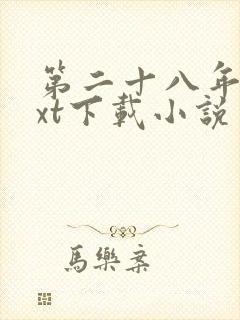 第二十八年
xt下載小說
馬樂案